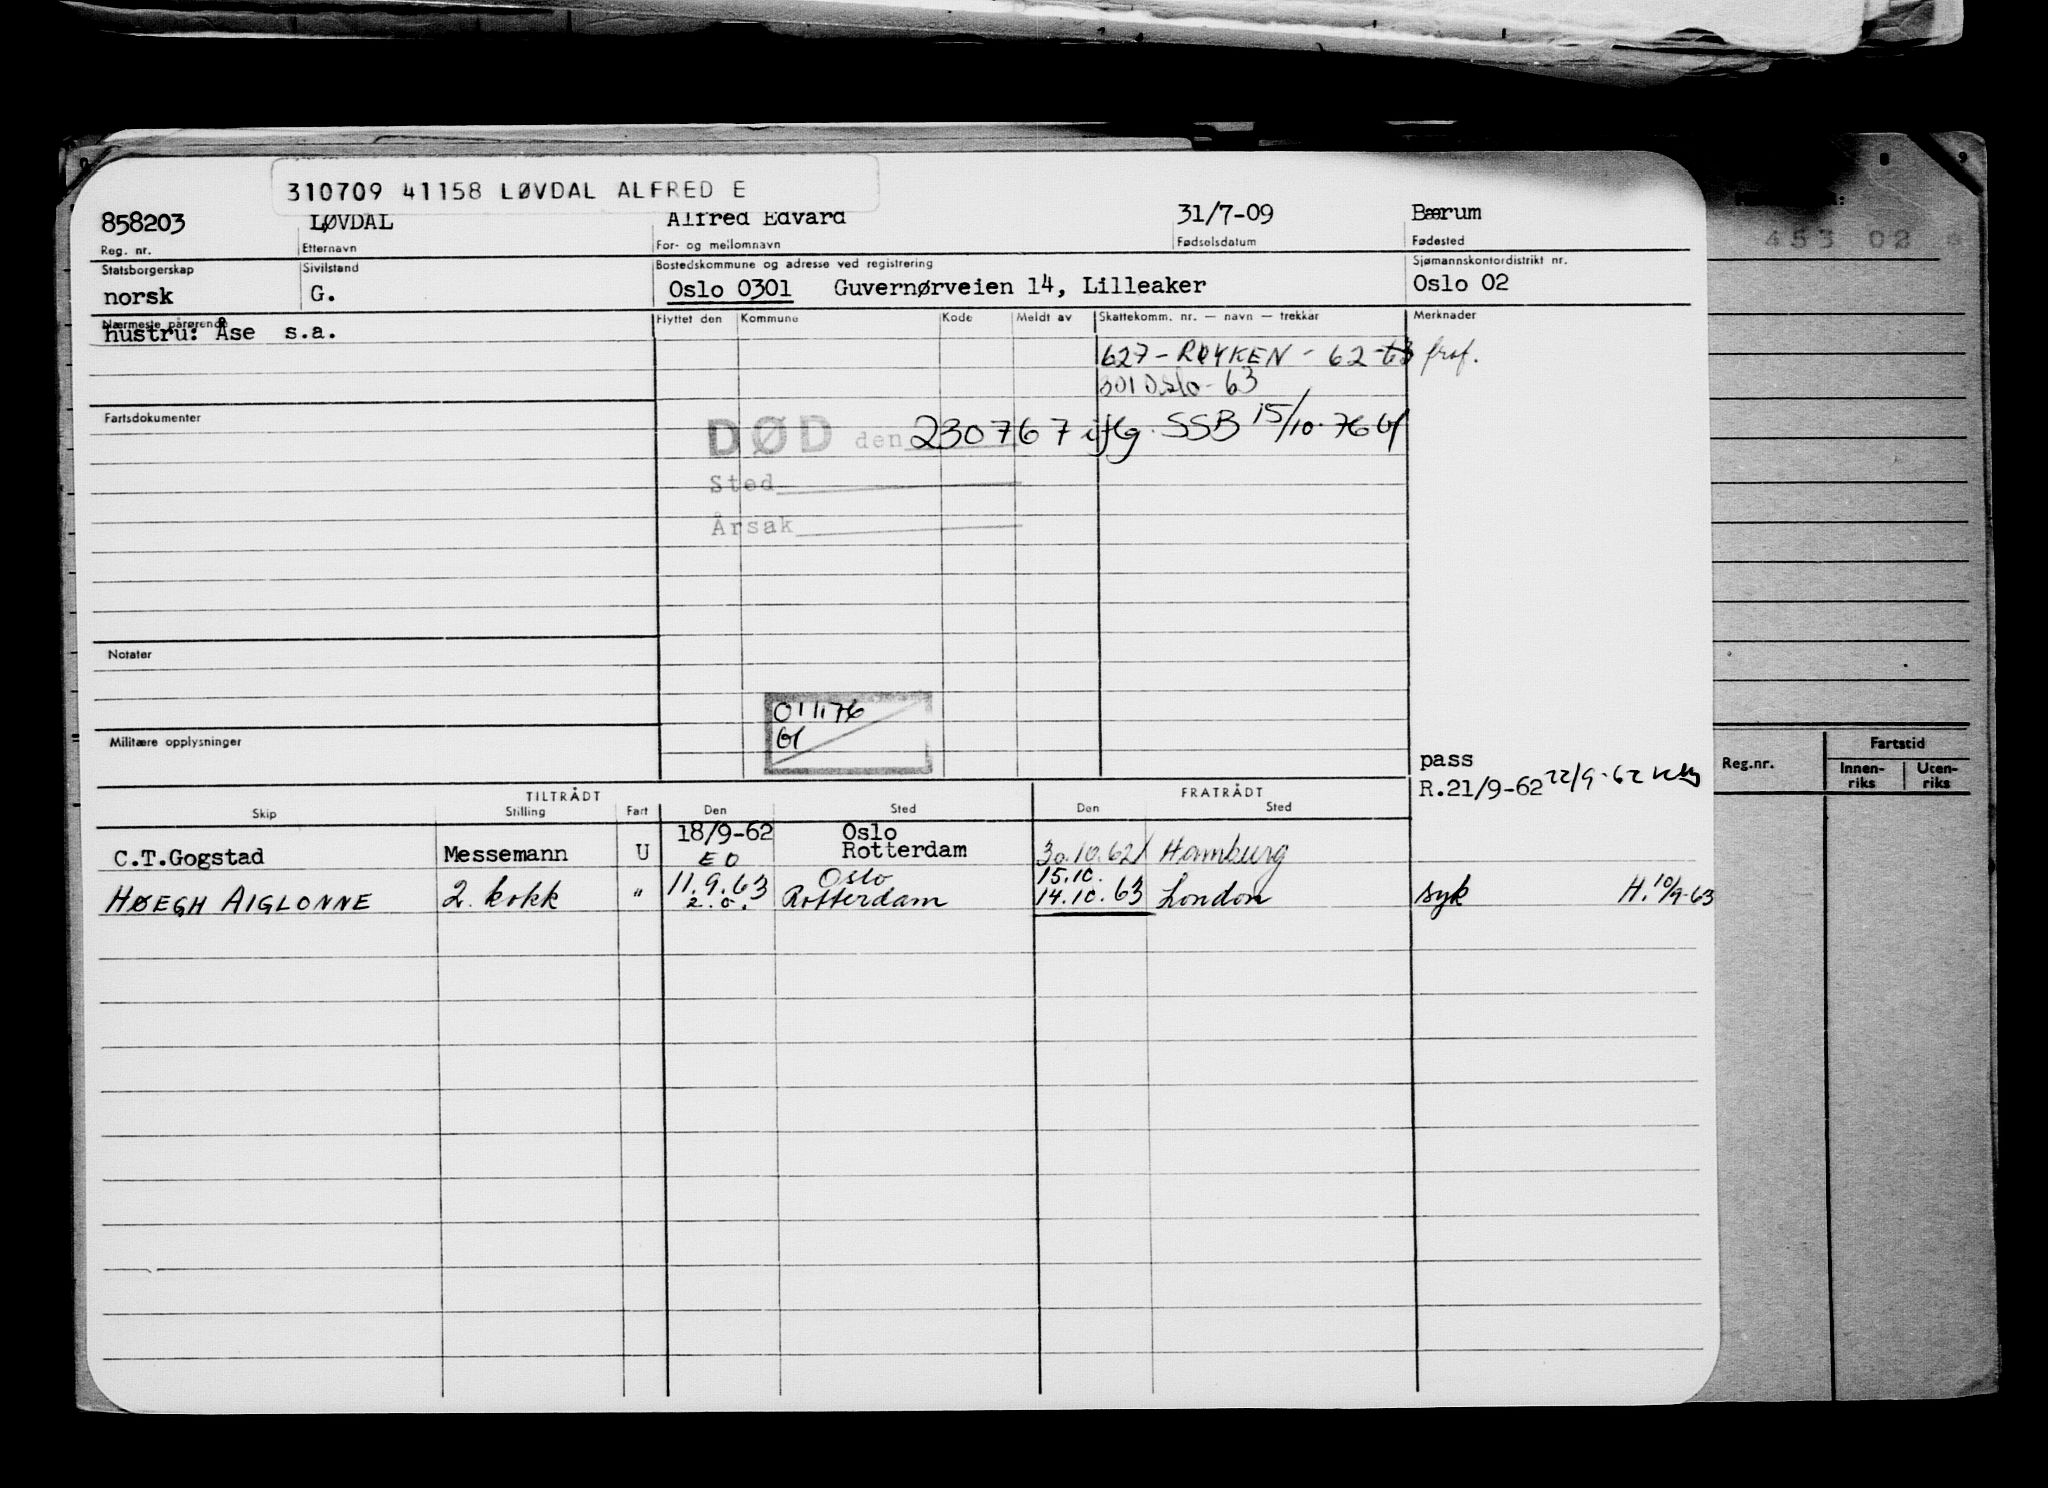 310709 41158 LØVDAL ALFRED E
858203 LØVDAL Alfred Edvard 31/7-09 Bærum
Reg. nr. Etternavn For- og mellomnavn Fødselsdatum Fødested
Statsborgerskap Sivilstand Bostedskommune og adresse ved registrering Sjømannskontordistrikt nr.
norsk G. Oslo 0301 Guvernørveien 14, Lilleaker Oslo 02
Nærmeste pårørende Flyttet den Kommune Kode Meldt av Skattekomm. nr. — navn — trekkår Merknader
hustru: Åse s.a.
627 - RØYKEN - 62-63 fraf.
301 Oslo - 63
Fartsdokumenter
DØD den 230767 iflg. SSB 15/10-76
Sted
Årsak
Notater
011176
Militære opplysninger
pass
R.21/9-62 22/9-62
TILTRÅDT FRATRÅDT
Skip Stilling Fart Den Sted Den Sted
18/9-62 Oslo
C.T.Gogstad Messemann U EO Rotterdam 30.10.62 Hamburg
11.9.63 Oslo 15.10.
HØEGH AIGLONNE 2. kokk " 2.o. Rotterdam 14.10.63 London syk H.10/9-63
8 9
453 02
Reg.nr. Fartstid
Innen-riks Uten-riks